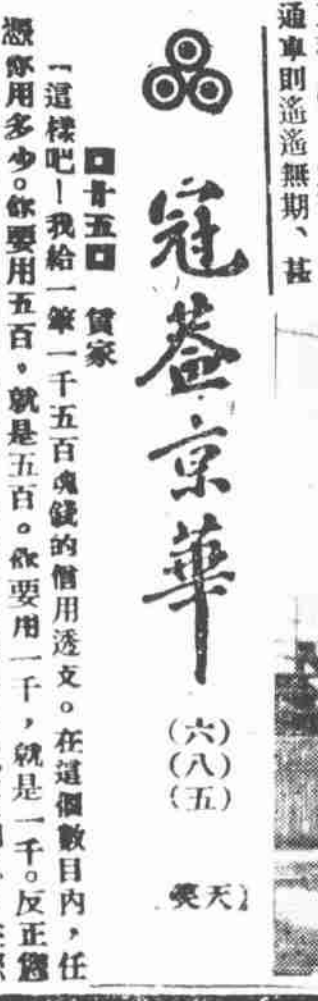 通車則遙遙無期、甚
冠蓋京華
(六八五)
天笑
廿五 賃家
「這樣吧！我給一筆一千五百塊錢的借用透支。在這個數目內，任
憑你用多少。你要用五百。就是五百。你要用一千，就是一千。反正您